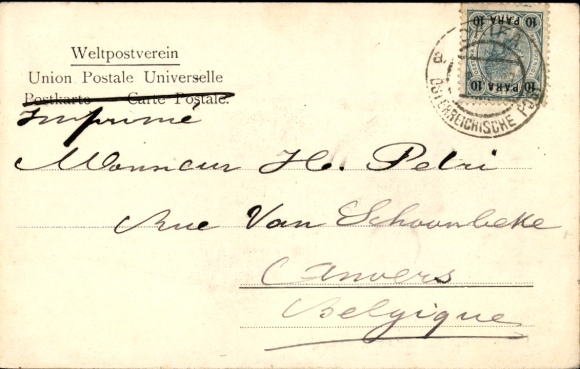 Weltpostverein
Union Postale Universelle
Postkarte Carte Postale.
Imprimé
Monsieur H. Petri
Rue Van Schoonbeke
Anvers
Belgique
10 PARA 10
10 PARA 10
ÖSTERREICHISCHE P